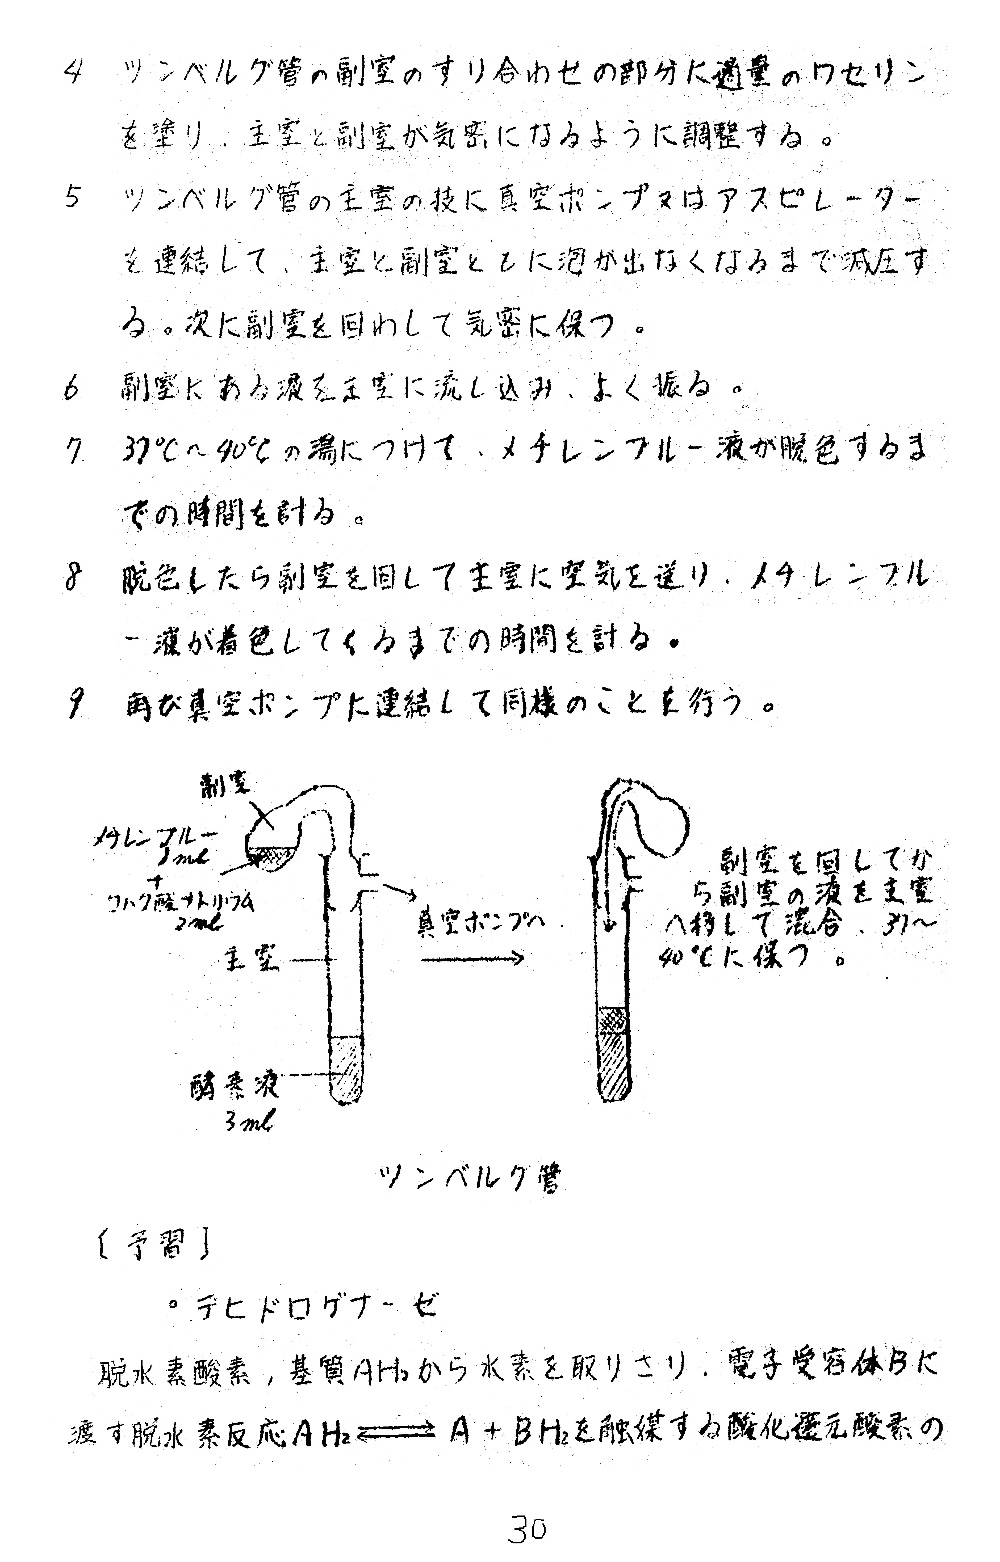 4 ツンベルグ管の副室のすり合わせの部分に適量のワセリン
を塗り、主室と副室が気密になるように調整する。
5 ツンベルグ管の主室の技に真空ポンプ又はアスピレーター
を連結して、主室と副室ともに泡が出なくなるまで減圧す
る。次に副室を回わして気密に保つ。
6 副室にある液を主室に流し込み、よく振る。
7 37℃〜40℃の湯につけて、メチレンブルー液が脱色するま
での時間を計る。
8 脱色したら副室を回して主室に空気を送り、メチレンブル
ー液が着色してくるまでの時間を計る。
9 再び真空ポンプに連結して同様のことを行う。
副室
メチレンブルー
1ml
+
コハク酸ナトリウム
2ml
主室
酵素液
3ml
真空ポンプへ
副室を回してか
ら副室の液を主室
へ移して混合、37〜
40℃に保つ。
ツンベルグ管
[予習]
・デヒドロゲナーゼ
脱水素酸素,基質AH₂から水素を取りさり、電子受容体Bに
渡す脱水素反応AH₂⇌A+BH₂を触媒する酸化還元酸素の
30